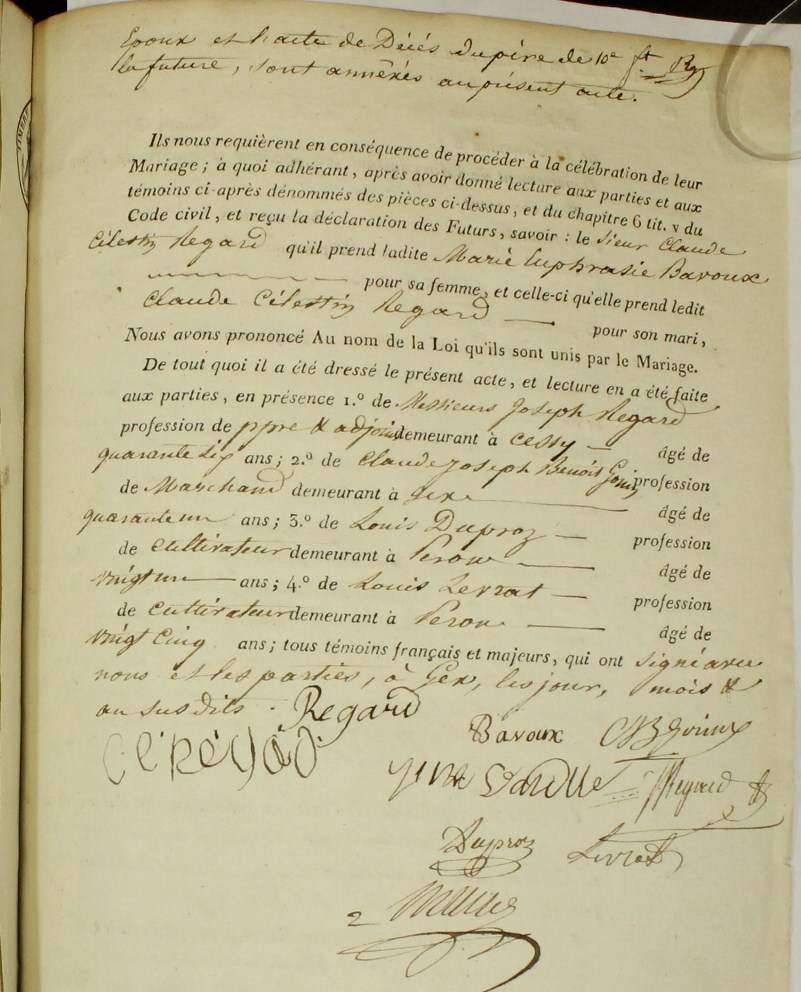 Epoux et l'acte de Décés du père de
la future, sont annéxés au présent acte.
Ils nous requièrent en conséquence de procéder à la célébration de leur
Mariage; à quoi adhérant, après avoir donné lecture aux parties et aux
témoins ci-après dénommés des pièces ci-dessus, et du chapitre 6 tit. v du
Code civil, et reçu la déclaration des Futurs, savoir : le Sieur Claude
Célestin Regard qu'il prend ladite Marie Euphrasie Bavoux
pour sa femme, et celle-ci qu'elle prend ledit
Claude Célestin Regard pour son mari,
Nous avons prononcé Au nom de la Loi qu'ils sont unis par le Mariage.
De tout quoi il a été dressé le présent acte, et lecture en a été faite
aux parties, en présence 1.º de Messieurs Joseph Regard
profession de ppre & adjoint demeurant à Cessy âgé de
quarante six ans; 2.º de Claude Joseph Benoit profession
de Marchand demeurant à Gex âgé de
quarante un ans; 3.º de Louis Duproz profession
de Cultivateur demeurant à Peron âgé de
vingt un ans; 4.º de Louis Levrat profession
de Cultivateur demeurant à Peron âgé de
vingt cinq ans; tous témoins français et majeurs, qui ont signé avec
nous et les parties, à Gex, les jour, mois &
an susdits. Regard
Bavoux
Regard
Duproz Levrat